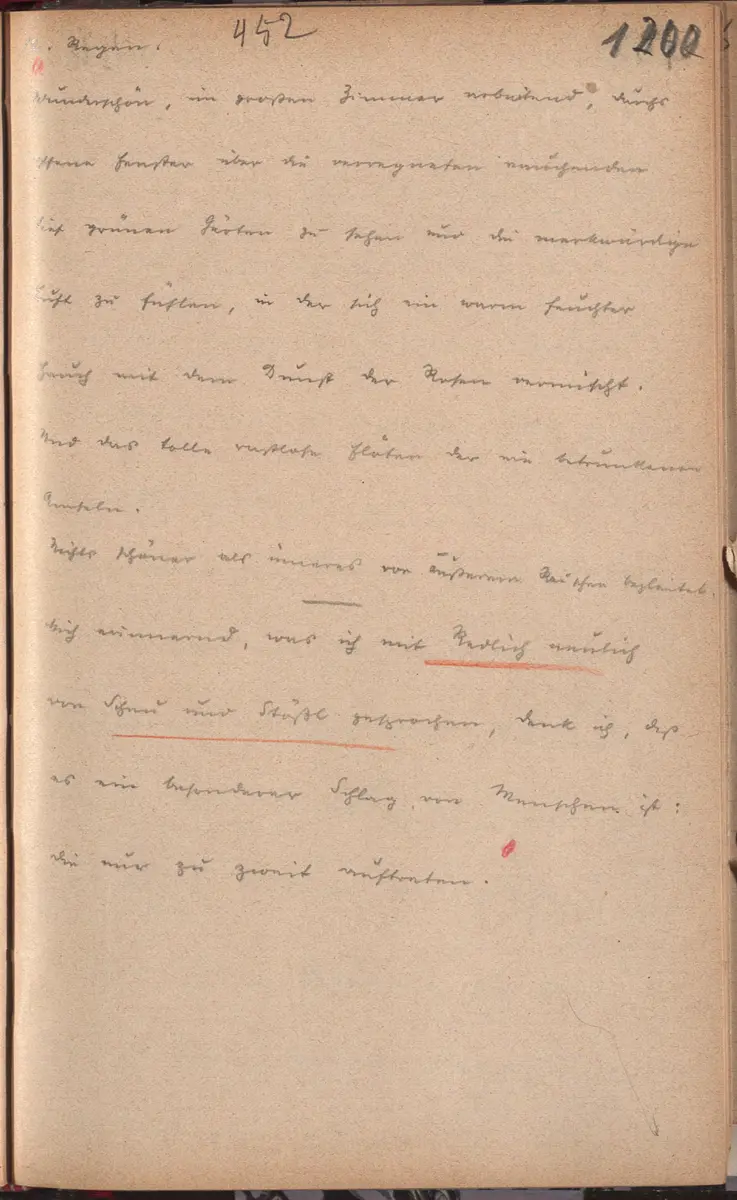 452
1200
. Regen.
wunderschön, im großen Zimmer arbeitend, durchs
offene Fenster über die verregneten rauchenden
tief grünen Gärten zu sehen und die merkwürdige
Luft zu fühlen, in der sich ein warm feuchter
Hauch mit dem Dunst der Rosen vermischt.
Und das tolle rastlose Flöten der wie betrunkenen
Amseln.
Nichts schöner als inneres von äußerem Rauschen begleitet.
Mich erinnernd, was ich mit Redlich neulich
von Schau und Stößl gesprochen, denk ich, daß
es ein besonderer Schlag von Menschen ist:
die nur zu zweit auftreten.